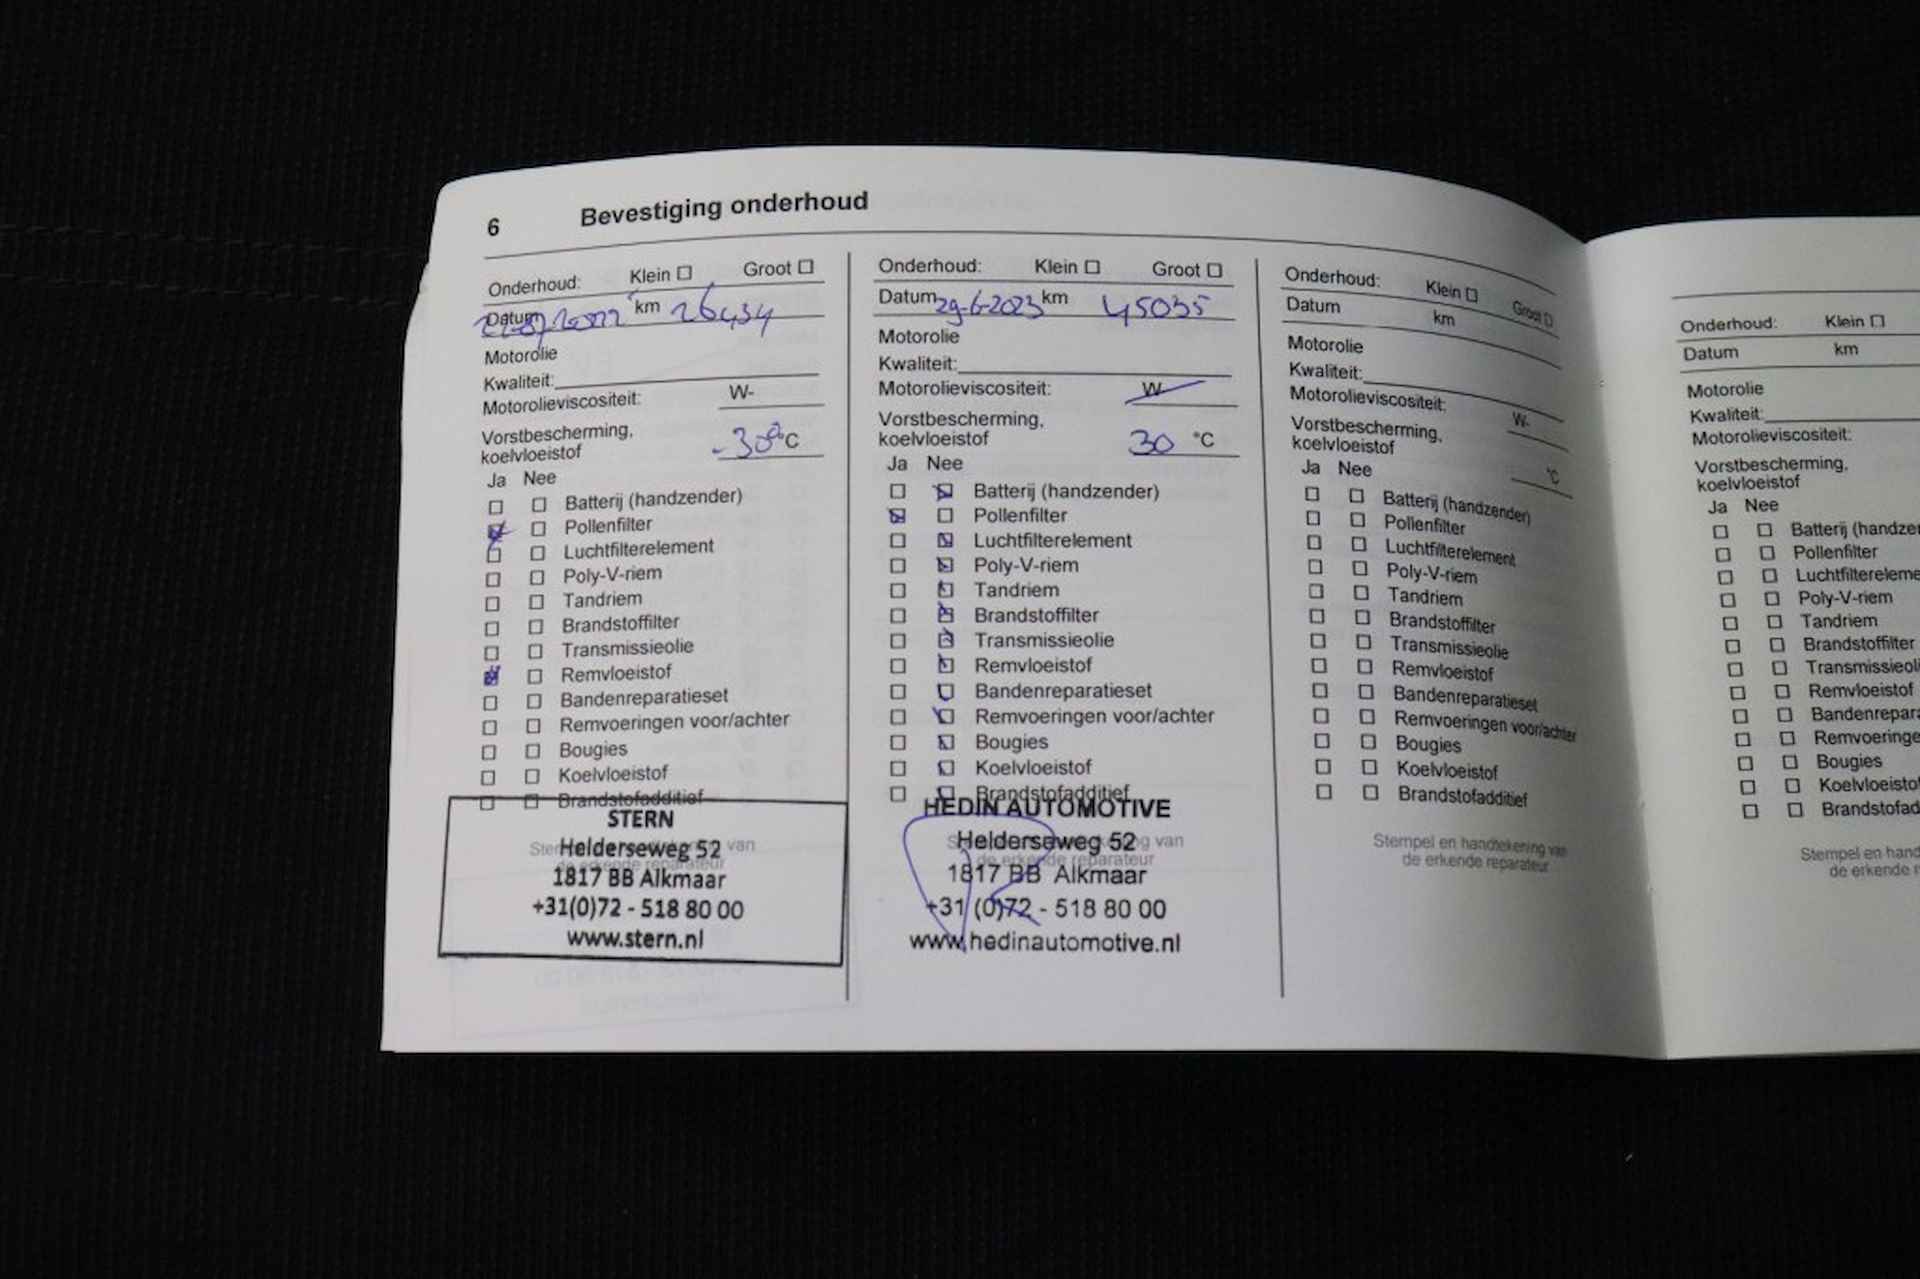 6 Bevestiging onderhoud
Onderhoud: Klein Groot
Datum km 26434
Motorolie
Kwaliteit:
Motorolieviscositeit: W-
Vorstbescherming,
koelvloeistof -30° °C
Ja Nee
Batterij (handzender)
Pollenfilter
Luchtfilterelement
Poly-V-riem
Tandriem
Brandstoffilter
Transmissieolie
Remvloeistof
Bandenreparatieset
Remvoeringen voor/achter
Bougies
Koelvloeistof
Brandstofadditief
Stempel en handtekening van
de erkende reparateur
STERN
Helderseweg 52
1817 BB Alkmaar
+31(0)72 - 518 80 00
www.stern.nl
Onderhoud: Klein Groot
Datum 29-6-2023 km 45035
Motorolie
Kwaliteit:
Motorolieviscositeit: W-
Vorstbescherming,
koelvloeistof 30 °C
Ja Nee
Batterij (handzender)
Pollenfilter
Luchtfilterelement
Poly-V-riem
Tandriem
Brandstoffilter
Transmissieolie
Remvloeistof
Bandenreparatieset
Remvoeringen voor/achter
Bougies
Koelvloeistof
Brandstofadditief
Stempel en handtekening van
de erkende reparateur
HEDIN AUTOMOTIVE
Helderseweg 52
1817 BB Alkmaar
+31 (0)72 - 518 80 00
www.hedinautomotive.nl
Onderhoud: Klein Groot
Datum km
Motorolie
Kwaliteit:
Motorolieviscositeit: W-
Vorstbescherming,
koelvloeistof °C
Ja Nee
Batterij (handzender)
Pollenfilter
Luchtfilterelement
Poly-V-riem
Tandriem
Brandstoffilter
Transmissieolie
Remvloeistof
Bandenreparatieset
Remvoeringen voor/achter
Bougies
Koelvloeistof
Brandstofadditief
Stempel en handtekening van
de erkende reparateur
Onderhoud: Klein
Datum km
Motorolie
Kwaliteit:
Motorolieviscositeit:
Vorstbescherming,
koelvloeistof
Ja Nee
Batterij (handze
Pollenfilter
Luchtfiltereleme
Poly-V-riem
Tandriem
Brandstoffilter
Transmissieoli
Remvloeistof
Bandenrepara
Remvoeringe
Bougies
Koelvloeisto
Brandstofad
Stempel en hand
de erkende r